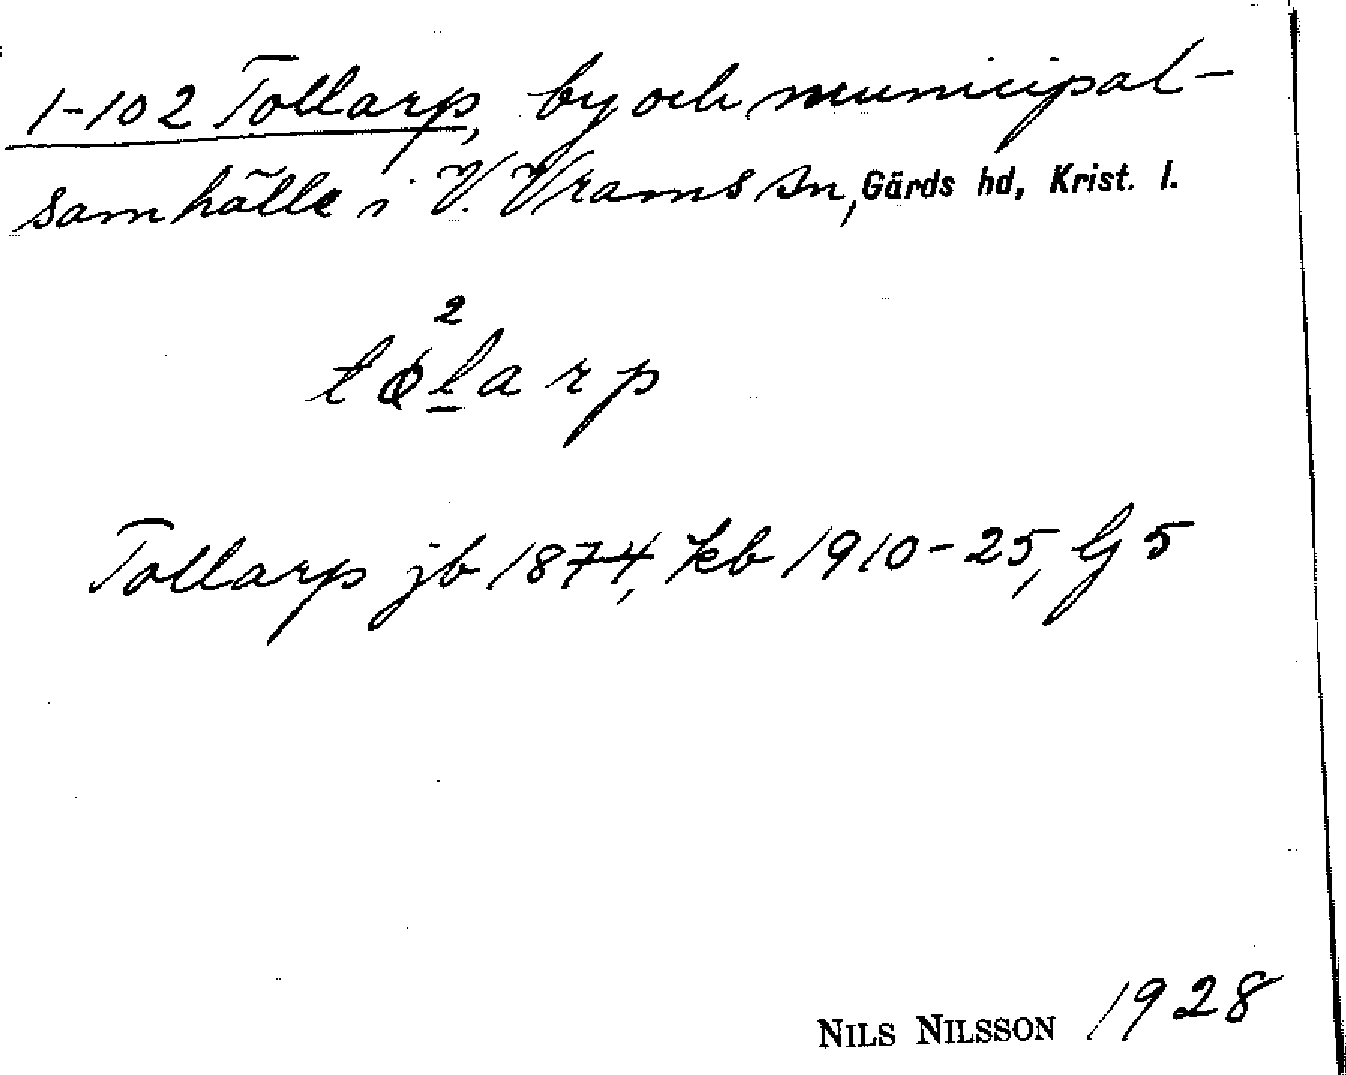 1-102 Tollarp, by och municipal-
samhälle i V. Vrams sn, Gärds hd, Krist. l.
2
tɸlarp
Tollarp jb 1874, kb 1910-25, G5
NILS NILSSON 1928